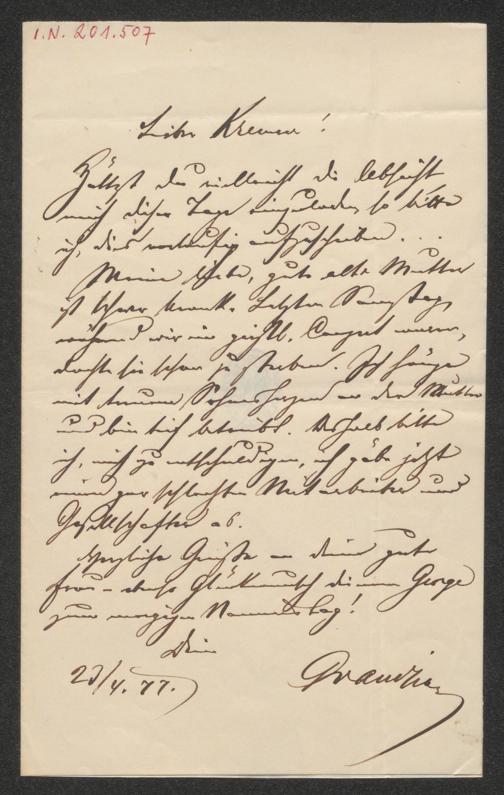 I.N. 201.507
Lieber Kremser!
Hättest du vielleicht die Absicht
mich dieser Tage einzuladen, so bitte
ich, dies vorläufig aufzuschieben . . .
Meine liebe, gute alte Mutter
ist schwer krank. Letzten Samstag,
während wir im geistl. Concert waren,
dachte sie schon zu sterben. Ich hänge
mit treuem Sohnesherzen an der Mutter
und bin tief betrübt. Deshalb bitte
ich, mich zu entschuldigen, ich gäbe jetzt
einen gar schlechten Mitarbeiter und
Gesellschafter ab.
Herzliche Grüße an deine gute
Frau – ebenso Glückwunsch deinem George
zum morgigen Namenstag!
Dein
23/4. 77.